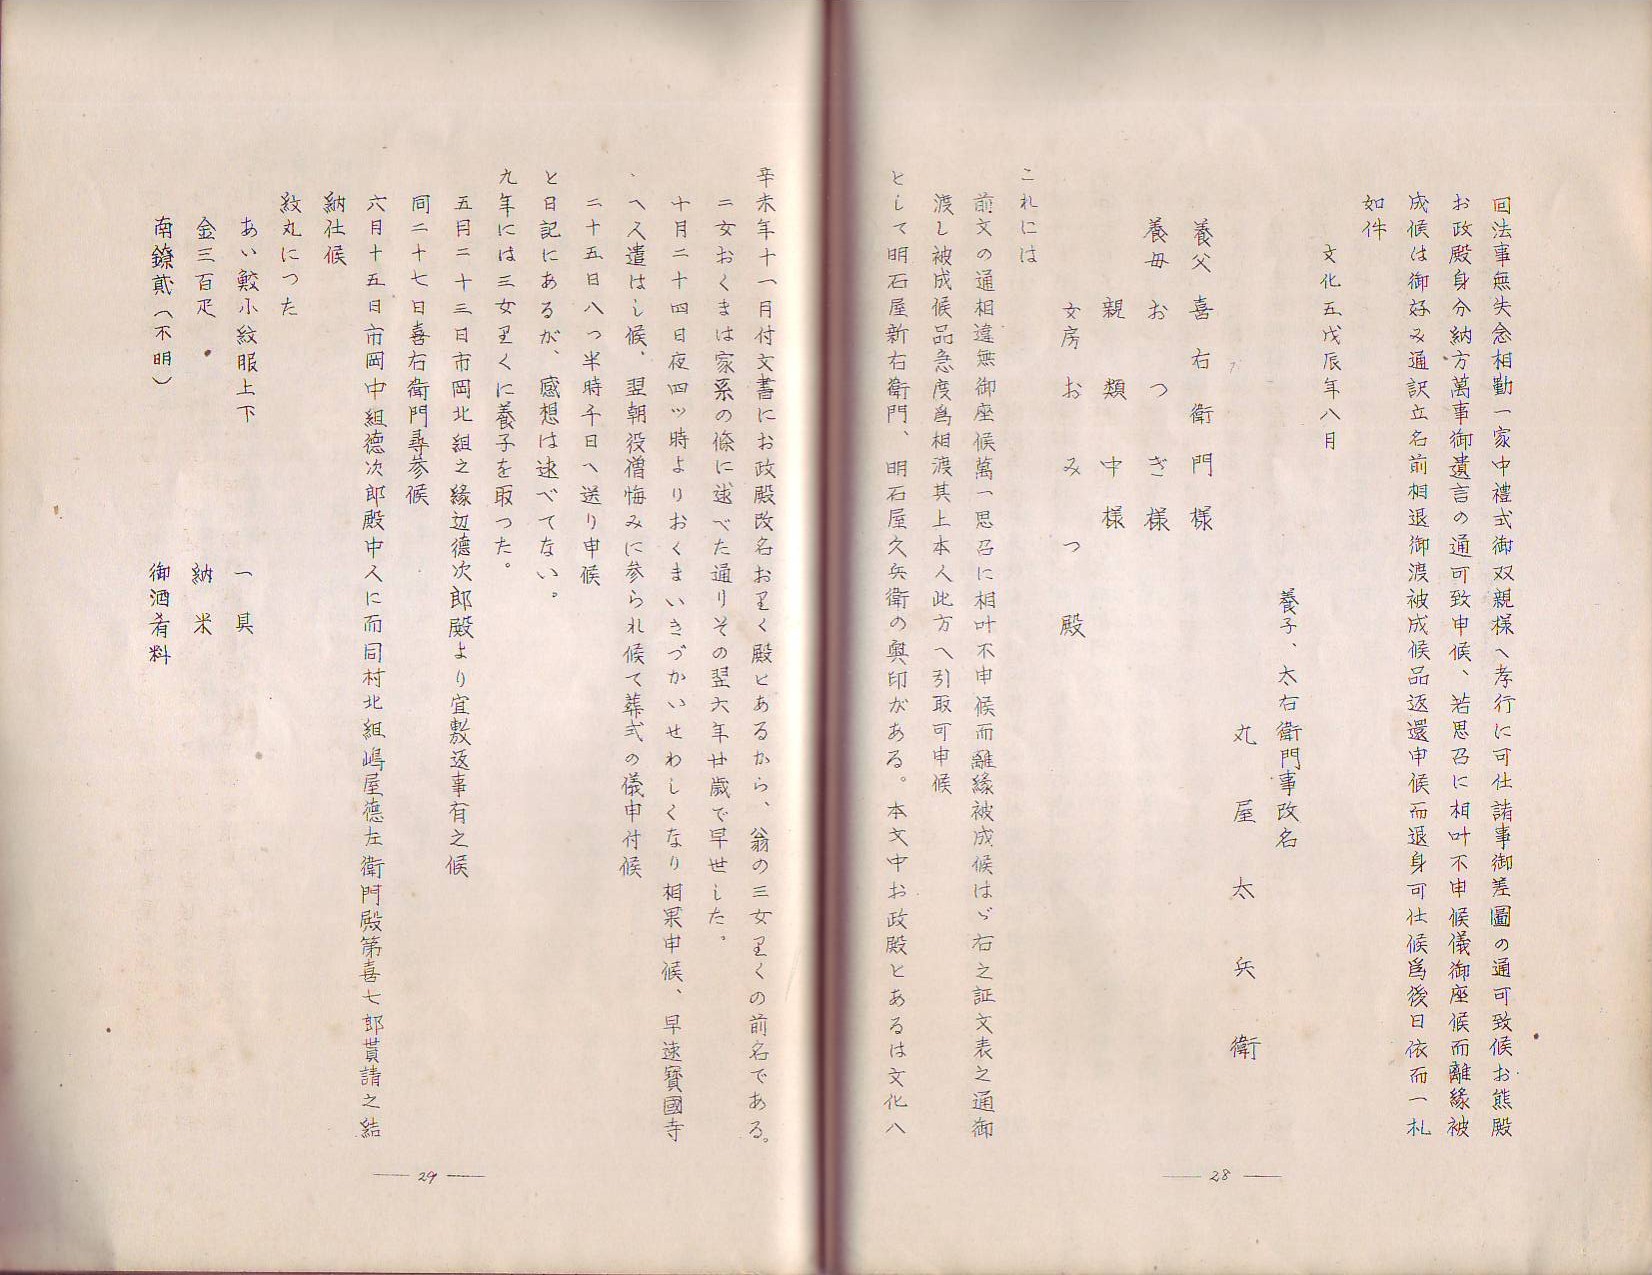 回法事無失念相勤一家中禮式御双親様へ孝行に可仕諸事御差圖の通可致候お熊殿
お政殿身分納方萬事御遺言の通可致申候、若思召に相叶不申候儀御座候而離縁被
成候は御好み通訳立名前相退御渡被成候品返還申候而退身可仕候為後日依而一札
如件
文化五戊辰年八月
養子、太右衛門事改名
丸屋太兵衛
養父喜右衛門様
養母おつぎ様
親類中様
女房おみつ殿
これには
前文の通相違無御座候萬一思召に相叶不申候而離縁被成候はゞ右之証文表之通御
渡し被成候品急度為相渡其上本人此方へ引取可申候
として明石屋新右衛門、明石屋久兵衛の奥印がある。本文中お政殿とあるは文化八
28
辛未年十一月付文書にお政殿改名お里く殿とあるから、翁の三女里くの前名である。
二女おくまは家系の條に述べた通りその翌六年廿歳で早世した。
十月二十四日夜四ッ時よりおくまいきづかいせわしくなり相果申候、早速寶國寺
へ人遣はし候、翌朝役僧悔みに参られ候て葬式の儀申付候
二十五日八つ半時千日へ送り申候
と日記にあるが、感想は述べてない。
九年には三女里くに養子を取つた。
五月二十三日市岡北組之縁辺德次郎殿より宜敷返事有之候
同二十七日喜右衛門尋参候
六月十五日市岡中組德次郎殿中人に而同村北組嶋屋德左衛門殿第喜七郎貰請之結
納仕候
紋丸につた
あい鮫小紋服上下　一具
金三百疋　納米
南鐐貮（不明）　御酒肴料
29